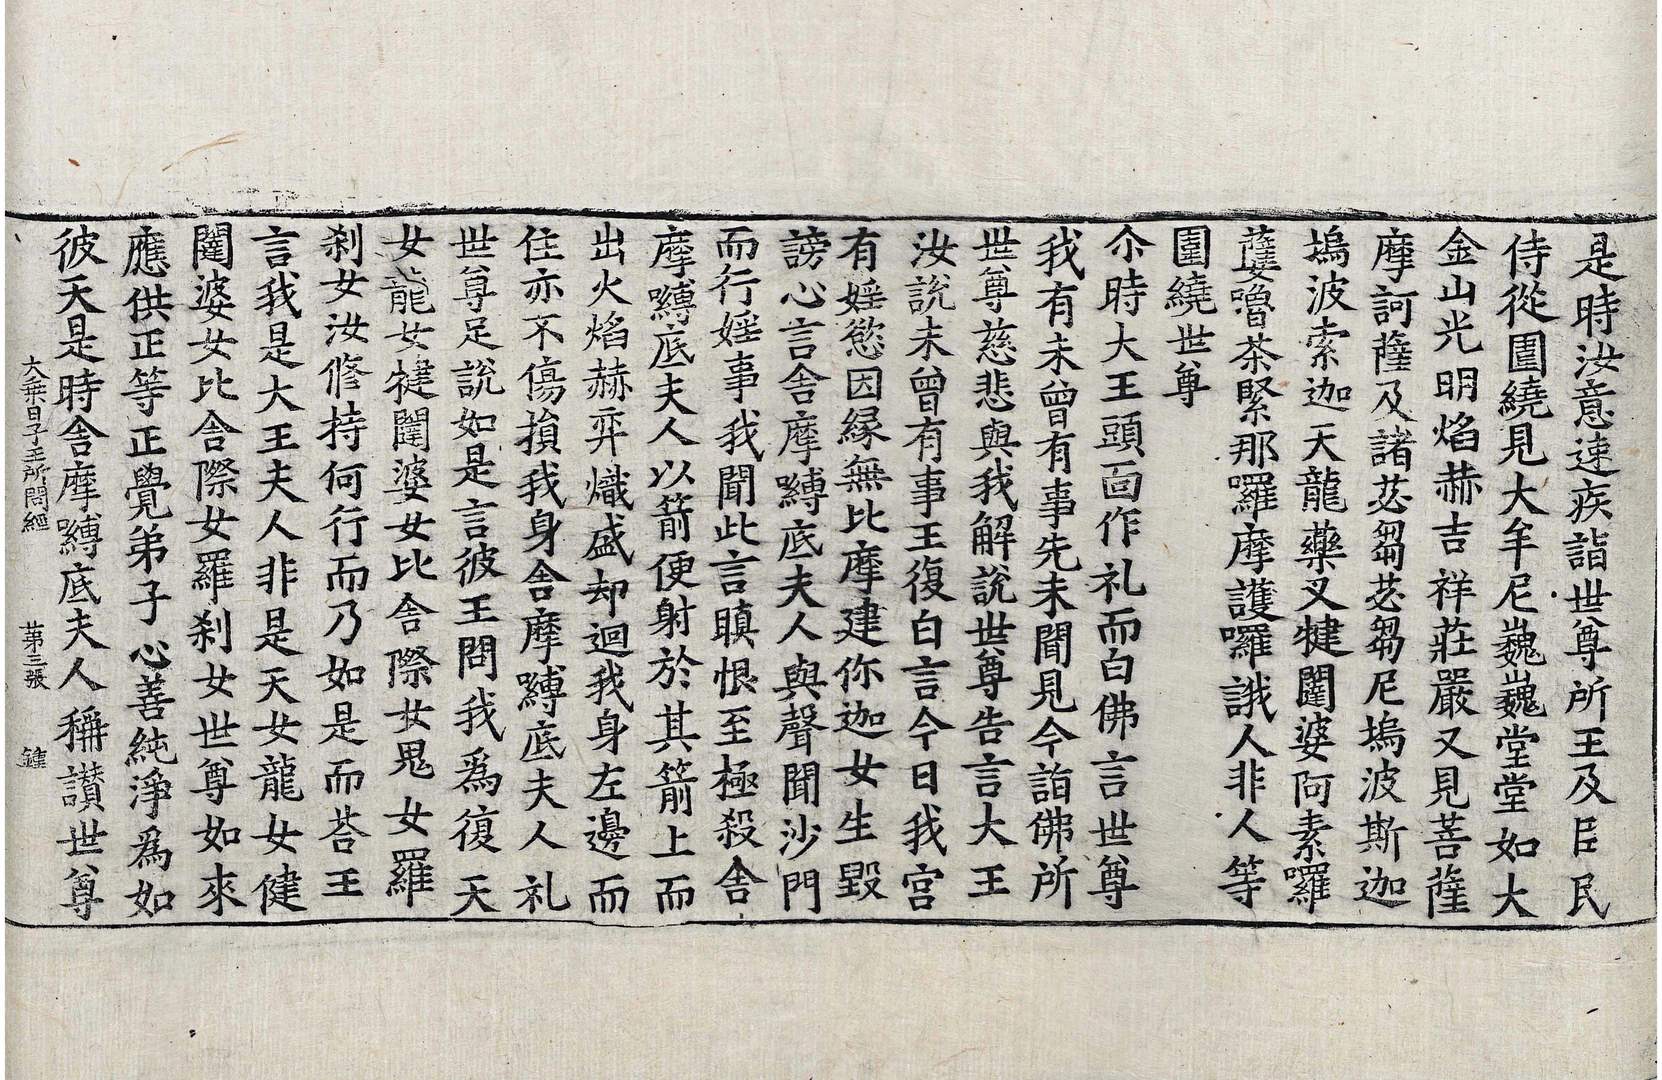 是時汝意速疾詣世尊所王及臣民
侍從圍繞見大牟尼巍巍堂堂如大
金山光明焰赫吉祥莊嚴又見菩薩
摩訶薩及諸苾芻苾芻尼塢波斯迦
塢波索迦天龍藥叉犍闥婆阿素囉
蘖嚕荼緊那囉摩護囉誐人非人等
圍繞世尊
尒時大王頭面作礼而白佛言世尊
我有未曾有事先未聞見今詣佛所
世尊慈悲與我解說世尊告言大王
汝說未曾有事王復白言今日我宫
有婬慾因緣無比摩建你迦女生毀
謗心言舎摩嚩底夫人與聲聞沙門
而行婬事我聞此言瞋恨至極殺舎
摩嚩底夫人以箭便射於其箭上而
出火焰赫弈熾盛却迴我身左邊而
住亦不傷損我身舎摩嚩底夫人礼
世尊足說如是言彼王問我為復天
女龍女犍闥婆女比舎際女鬼女羅
剎女汝修持何行而乃如是而荅王
言我是大王夫人非是天女龍女健
闥婆女比舎際女羅剎女世尊如來
應供正等正覺弟子心善純淨為如
彼天是時舎摩嚩底夫人稱讃世尊
大乗日子王所問經 苐三張 鍾